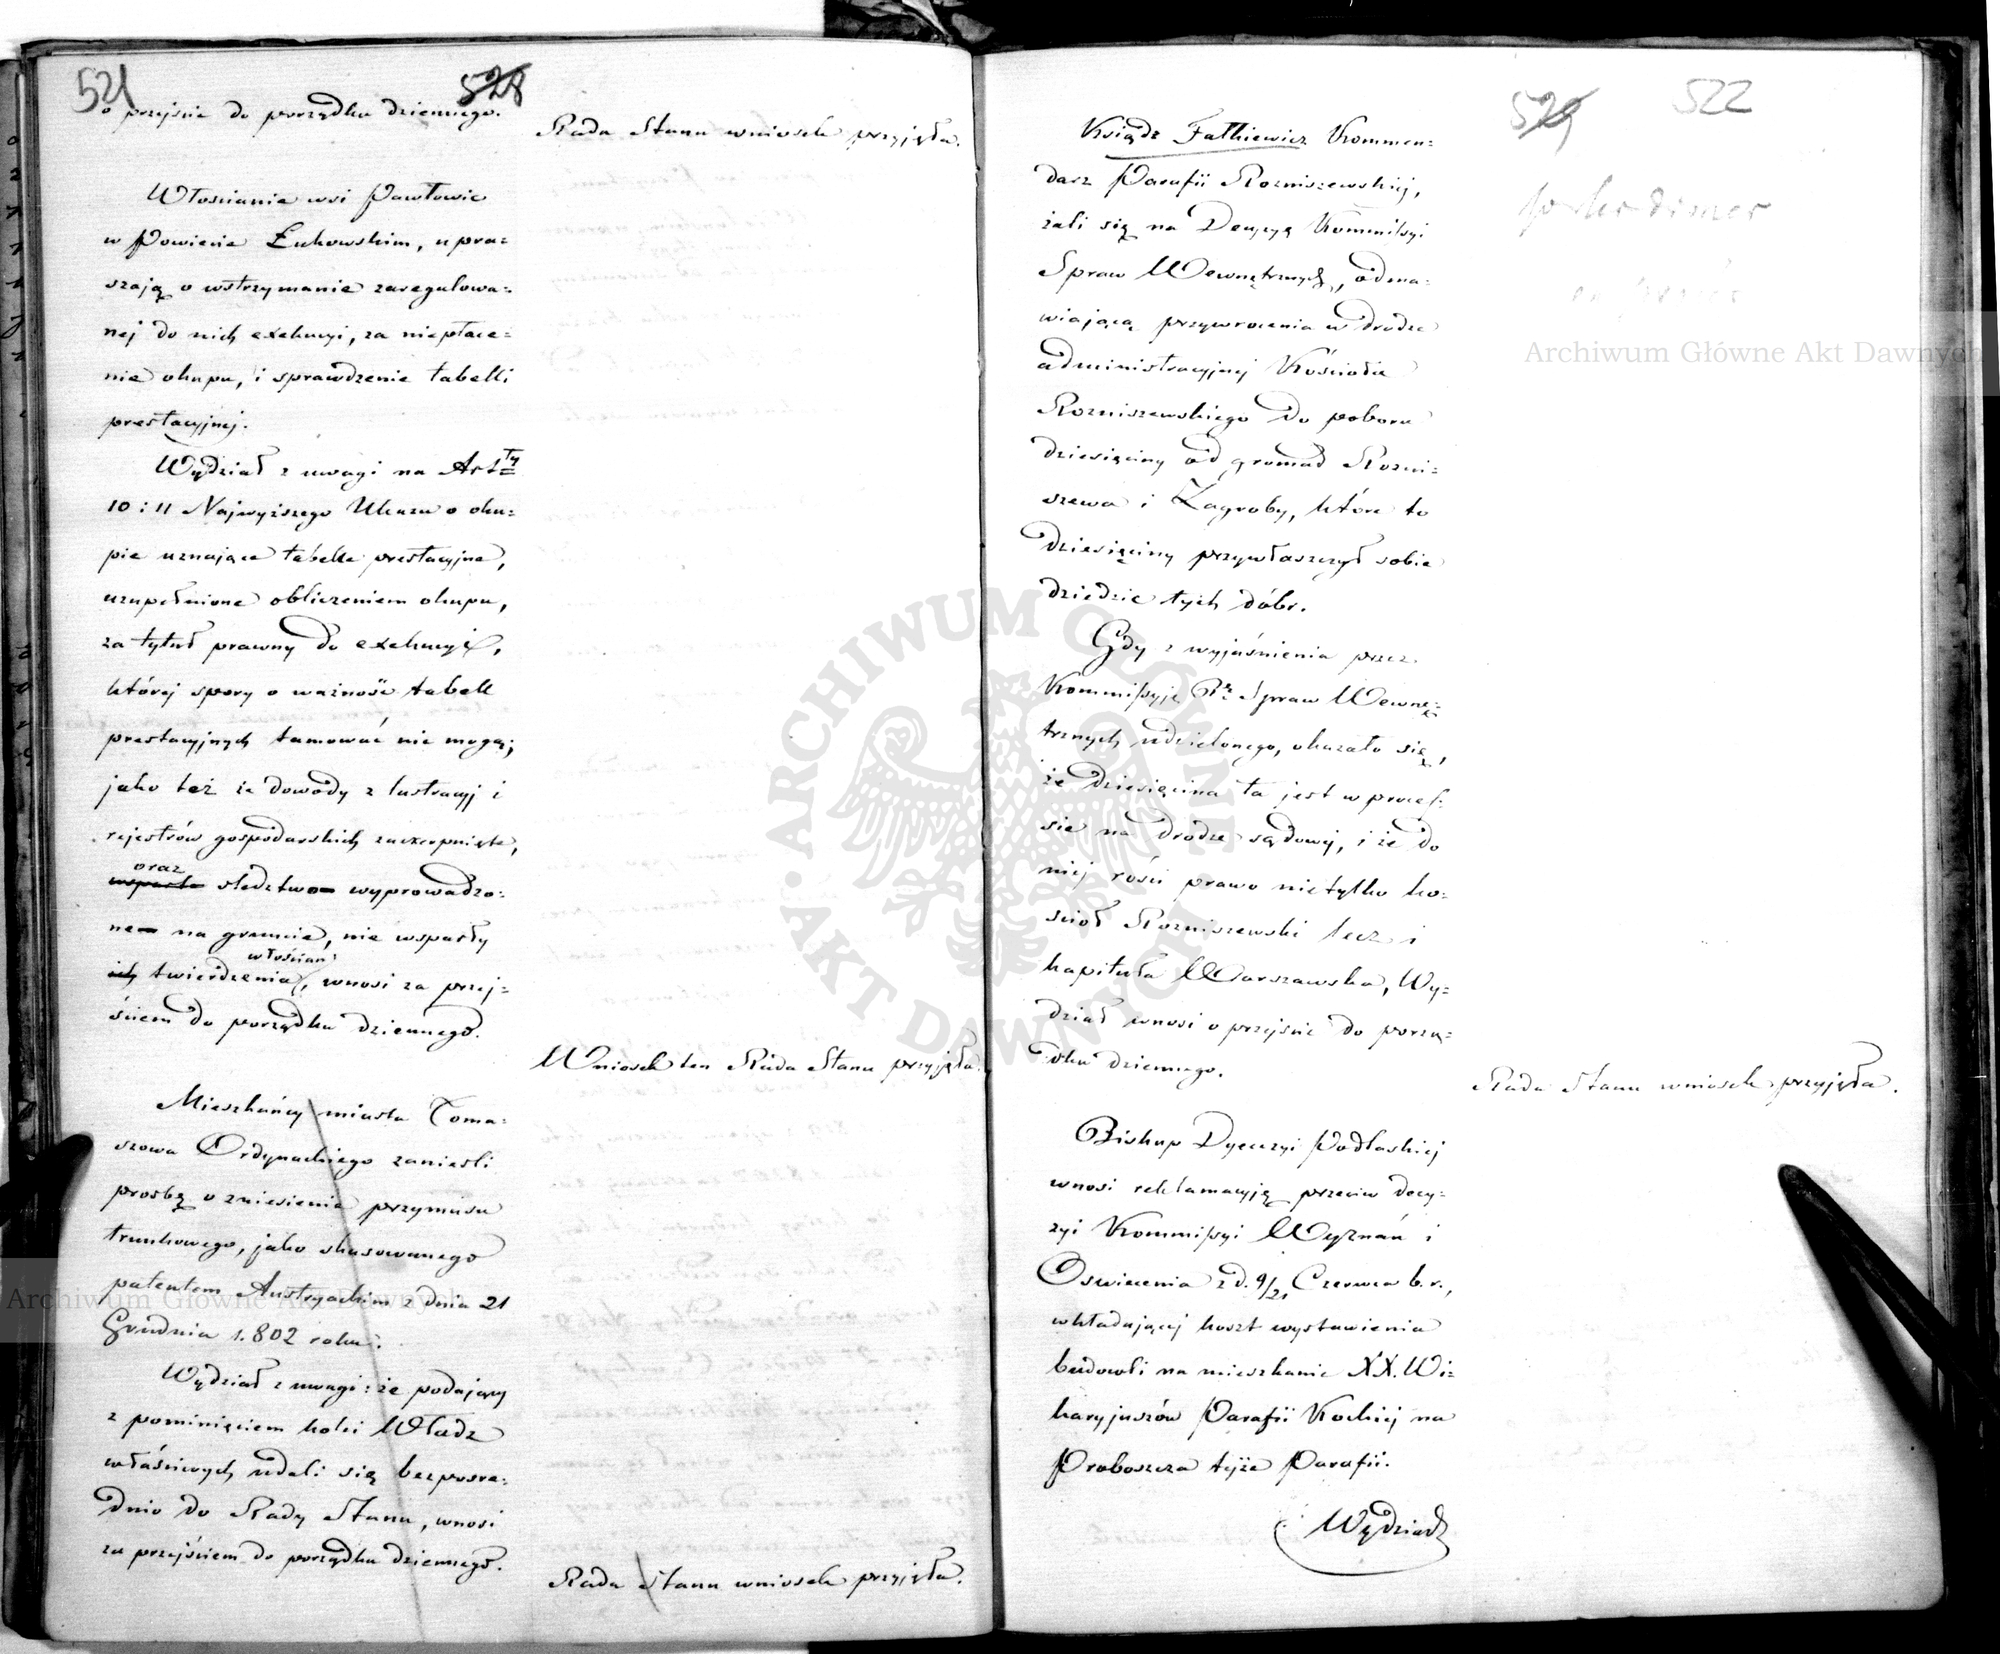 521
528
o przejście do porządku dziennego.
Rada Stanu wniosek przyjęła.
Włościanie wsi Pawłowic
w Powiecie Łukowskim, upra=
szają o wstrzymanie zaregulowa=
nej do nich exekucyi, za niepłace=
nie okupu, i sprawdzenie tabelli
prestacyjnej.
Wydział z uwagi na Art ty
10 i 11 Najwyższego Ukazu o oku=
pie uznające tabelle prestacyjne,
uzupełnione obliczeniem okupu,
za tytuł prawny do exekucyi,
której spory o ważność tabell
prestacyjnych tamować nie mogą;
jako też że dowody z lustracyj i
rejestrów gospodarskich zaczerpnięte,
oraz
wsparte śledztwo wyprowadzo=
ne na gruncie, nie wsparły
włościan
ich twierdzenia, wnosi za przej=
ściem do porządku dziennego.
Wniosek ten Rada Stanu przyjęła.
Mieszkańcy miasta Toma=
szowa Ordynackiego zanieśli
prośbę o zniesienie przymusu
trunkowego, jako skasowanego
patentem Austryackim z dnia 21
Grudnia 1.802 roku.
Wydział z uwagi: że podający
z pominięciem kolei Władz
właściwych udali się bezpośre=
dnio do Rady Stanu, wnosi
za przejściem do porządku dziennego.
Rada Stanu wniosek przyjęła.
529
522
Ksiądz Falkiewicz Kommen=
darz Parafii Rozniszewskiej,
żali się na Decyzyą Kommissyi
Spraw Wewnętrznych, odma=
wiającą przywrócenia w drodze
administracyjnej Kościoła
Rozniszewskiego do poboru
dziesięciny od gromad Rozni=
szewa i Zagroby, które to
dziesięciny przywłaszczył sobie
dziedzic tych dóbr.
Gdy z wyjaśnienia przez
Kommissyję Rz Spraw Wewnę=
trznych udzielonego, okazało się,
że dziesięcina ta jest w proces=
sie na drodze sądowej, i że do
niej rości prawo nietylko ko=
ściół Rozniszewski lecz i
kapituła Warszawska, Wy=
dział wnosi o przejście do porzą=
dku dziennego.
Rada Stanu wniosek przyjęła.
Biskup Dyecezyi Podlaskiej
wnosi reklamacyją przeciw decy=
zyi Kommissyi Wyznań i
Oświecenia z d. 9/21 Czerwca b.r.,
wkładającej koszt wystawienia
budowli na mieszkanie XX. Wi=
karyjuszów Parafii Kockiej na
Proboszcza tejże Parafii.
Wydział
ARCHIWUM GŁÓWNE AKT DAWNYCH
Archiwum Główne Akt Dawnych
Archiwum Główne Akt Dawnych